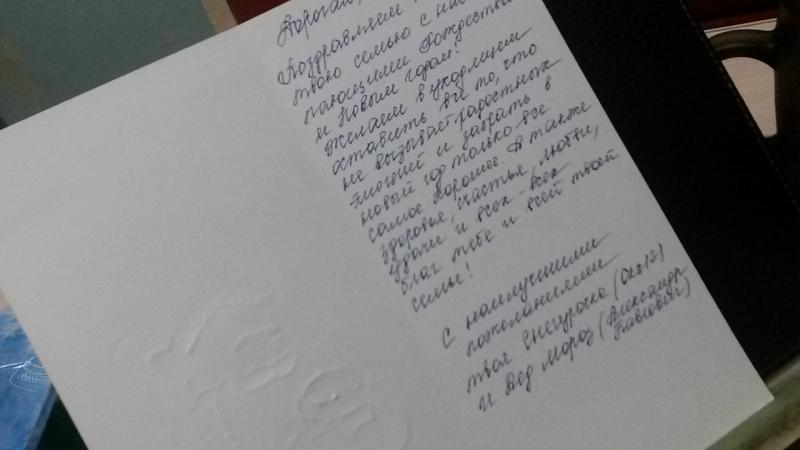 Дорогая,
Поздравляем
твою семью с нас
пающими Рождеством
и Новым годом!
Желаем в уходящем
оставить все то, что
не вызывает радостных
эмоций и забрать в
новый год только все
самое хорошее. А также
здоровья, счастья, любви,
удачи и всех-всех
благ тебе и всей твоей
семье!
С наилучшими
пожеланиями
твоя Снегурочка
и Дед Мороз (Александр
Павлович)